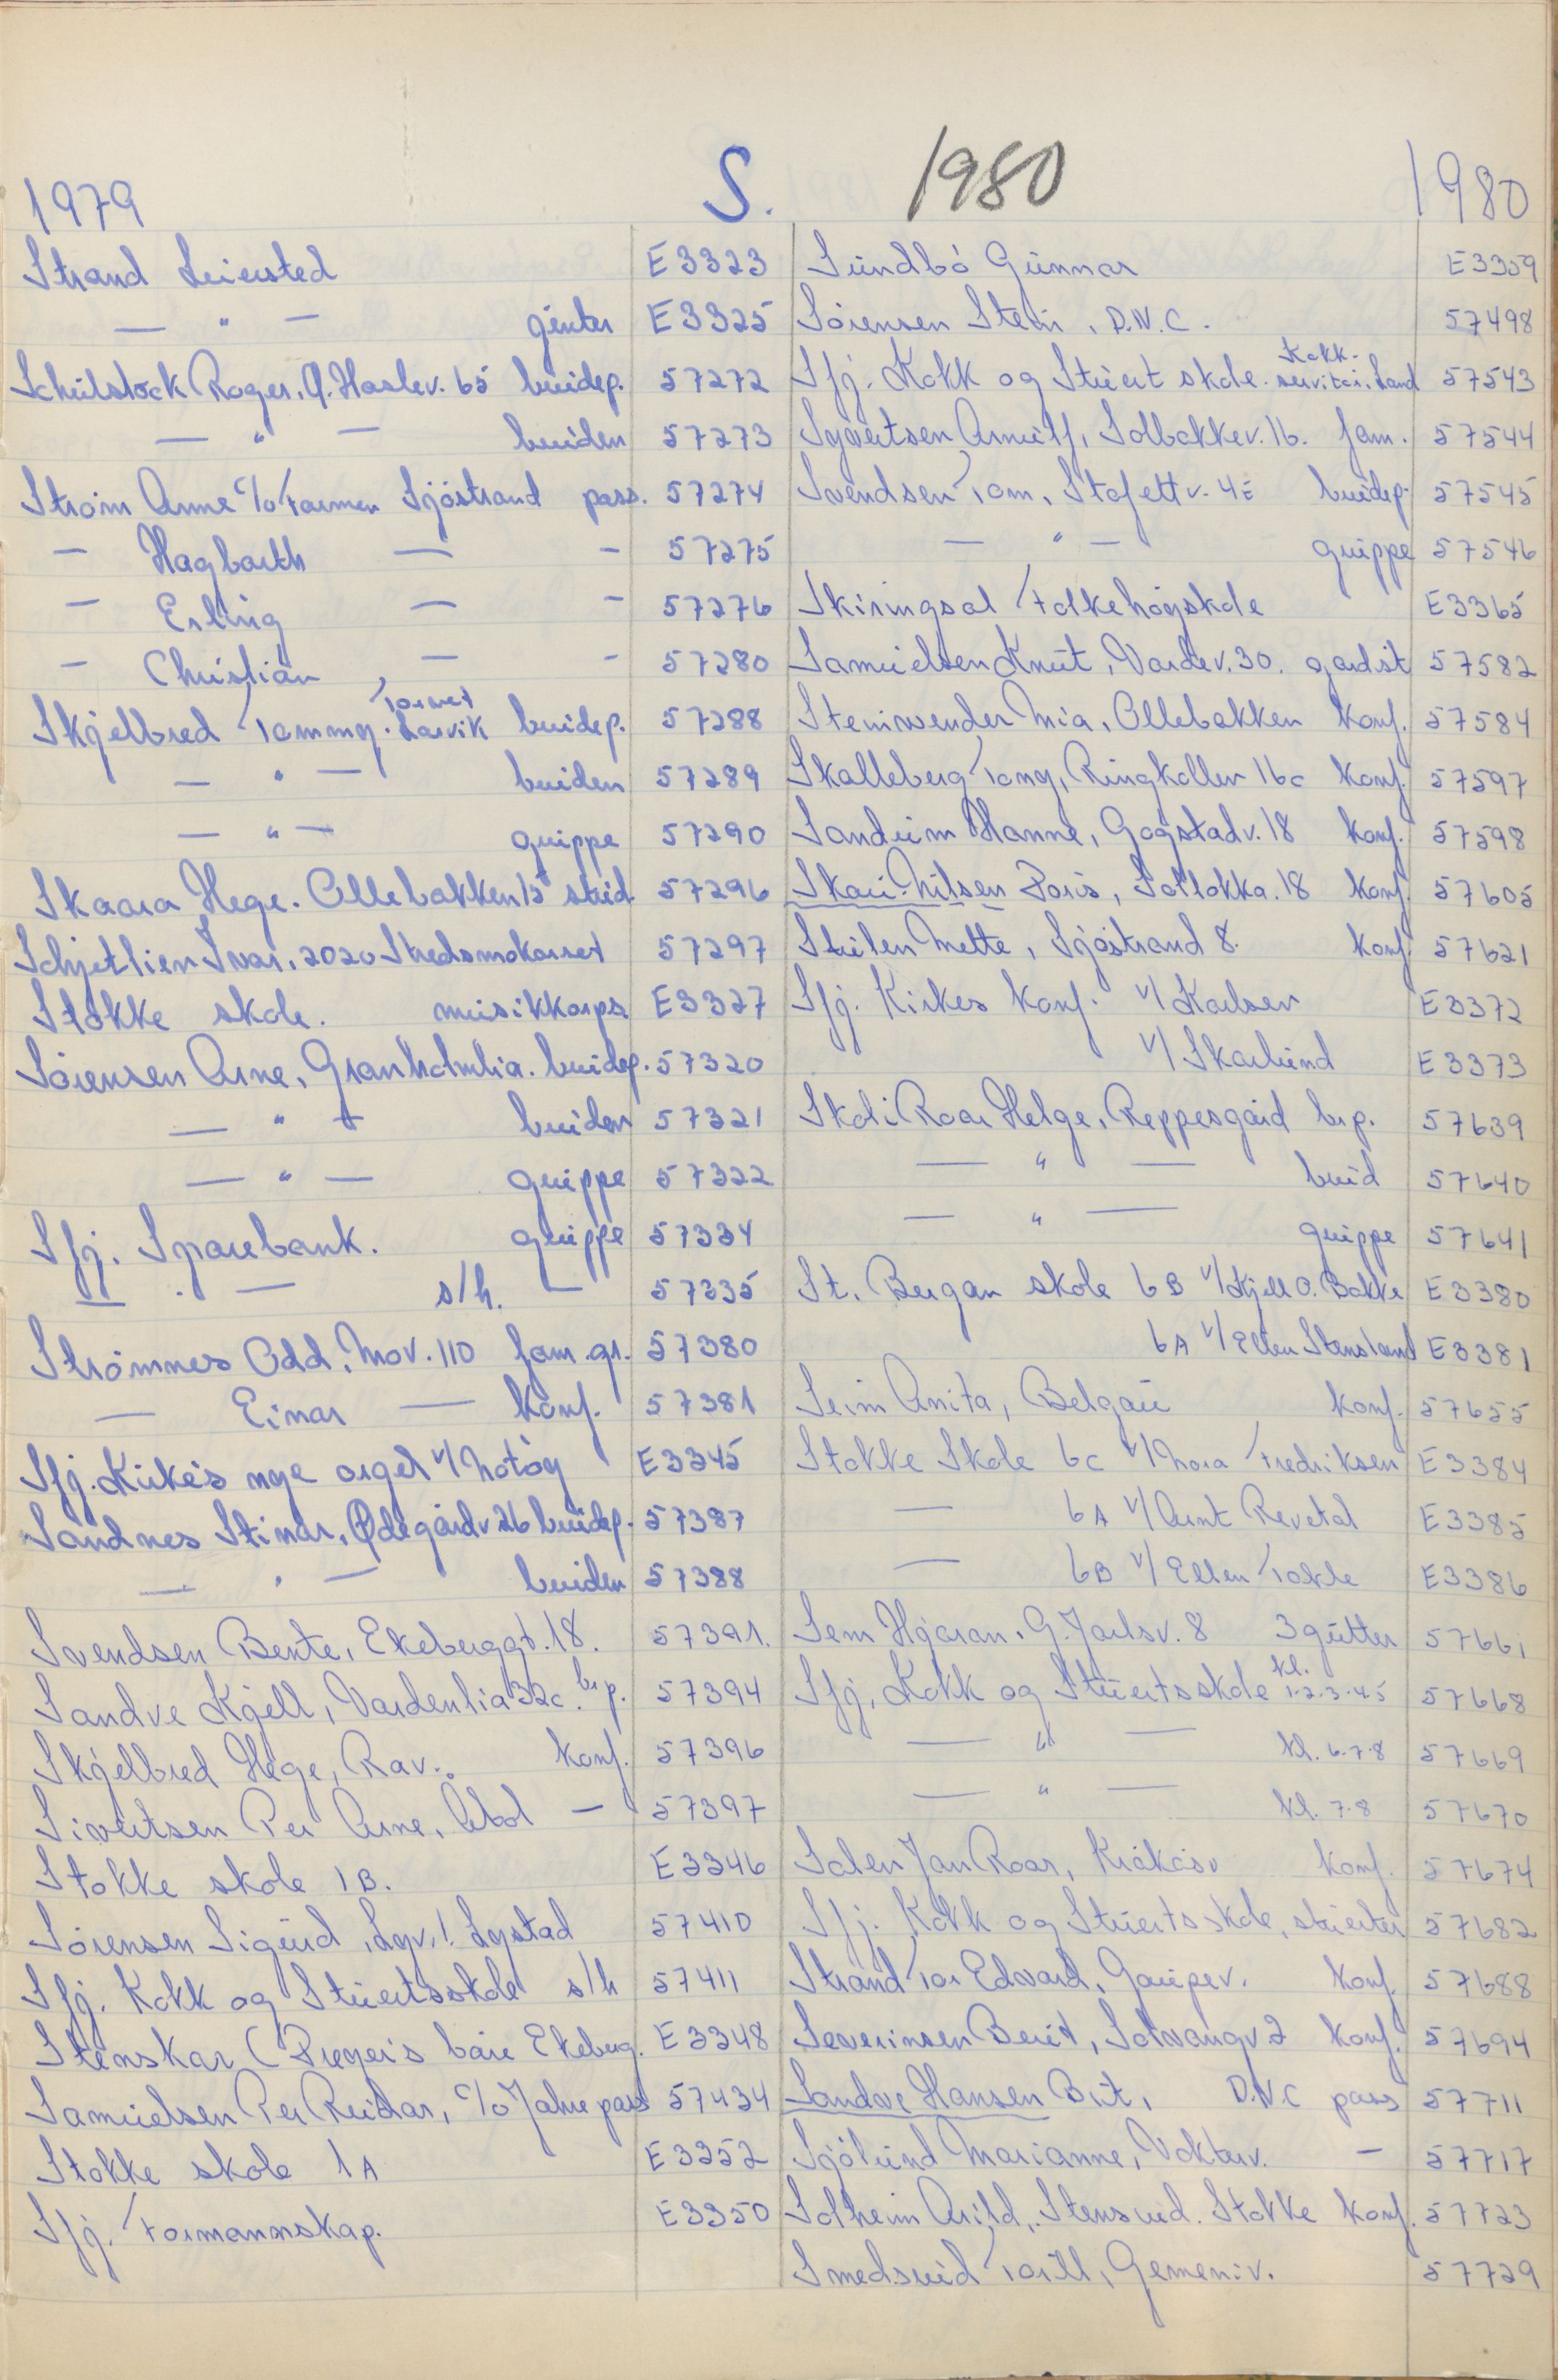 1979 S. 1980 1980
Strand Leiersted E3323
— " — jenter E3325
Schulstock Roger, A. Haslev. 65 brudep. 57272
— " — bruden 57273
Strøm Anne c/o Farmen Sjøstrand pass. 57274
— Hagbarth — — 57275
— Erling — — 57276
— Christian — — 57280
Skjelbred Tommy. Torvet Larvik brudep. 57288
— " — bruden 57289
— " — gruppe 57290
Skaara Hege. Ollebakken 15 stud. 57296
Schjetlien Ivar, 2020 Skedsmokorset 57297
Stokke skole. musikkorps E3327
Sørensen Arne, Granholmlia. brudep. 57320
— " — bruden 57321
— " — gruppe 57322
Sfj. Sparebank. gruppe 57334
— " — s/h. — 57335
Strømnes Odd, Mov. 110 fam.gr. 57380
— Einar — konf. 57381
Sfj. Kirkes nye orgel v/ Notøy E3345
Sandnes Steinar, Ødegårdv 26 brudep. 57387
— " — bruden 57388
Svendsen Bente, Ekeberggt. 18. 57391.
Sandve Kjell, Vardenlia 32c. brp. 57394
Skjelbred Hege, Rav. konf. 57396
Sivertsen Per Arne, — 57397
Stokke skole 1B. E3346
Sørensen Sigurd, Lystad 57410
Sfj. Kokk og Stuertsskole s/h 57411
Stenskar (Preyers båre Ekeberg. E3348
Samuelsen Per Reidar, c/o Jahre pass 57434
Stokke skole 1A E3352
Sfj. Formannskap. E3350
Sundbø Gunnar E3359
Sørensen Stein, D.N.C. 57498
Sfj. Kokk og Stuert skole. Kokk- servitør. Land 57543
Syvertsen Arnulf, Solbakkev. 16. fam. 57544
Svendsen Tom, Stafettv. 4E brudep. 57545
— " — gruppe 57546
Skiringsal Folkehøyskole E3365
Samuelsen Knut, Vardev. 30. gardist 57582
Steinwender Mia, Ollebakken konf. 57584
Skalleberg Tony, Ringkollen 16c konf. 57597
Sandrim Hanne, Gogstadv. 18 konf. 57598
Skau-Nilsen Doris, Solløkka. 18 konf. 57605
Stulen Mette, Sjøstrand 8. konf. 57621
Sfj. Kirkes konf. v/ Karlsen E3372
v/ Skarlund E3373
Skoli Roar Helge, Reppesgård brp. 57639
— " — brud 57640
— " — gruppe 57641
St. Bergan skole 6B v/ Kjell O. Bakke E3380
6A v/ Ellen Stensland E3381
Seim Anita, Belgau konf. 57655
Stokke Skole 6c v/ Nora Fredriksen E3384
— 6A v/ Arnt Revetal E3385
— 6B v/ Ellen Takle E3386
Sem Hjaran, G. Jarlsv. 8 3 gutter 57661
Sfj. Kokk og Stuertsskole kl. 1-2-3-4-5 57668
— " — kl. 6-7-8 57669
— " — kl. 7-8 57670
Solen Jan Roar, Kråkåsv konf. 57674
Sfj. Kokk og Stuertsskole, stuerter 57682
Strand Tor Edvard, Gaupev. konf. 57688
Severinsen Berit, Solvangv 2 konf. 57694
Sandve Hansen Brit, D.N.C pass 57711
Sjølund Marianne, Vokterv. — 57717
Solheim Arild, Stensrud. Stokke konf. 57723
Smedsrud Toril, Gemeniv. 57729